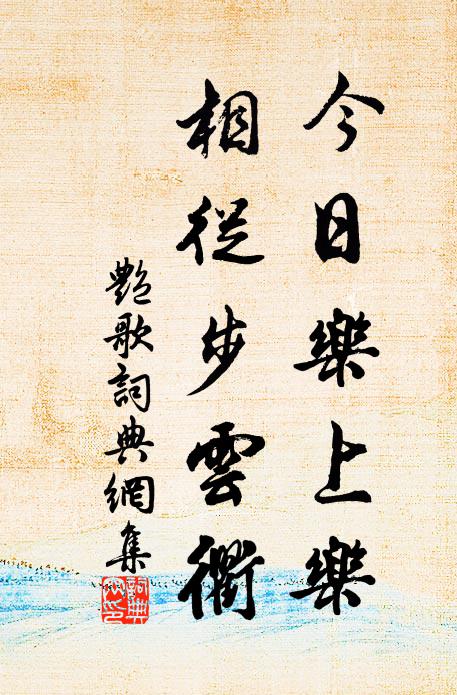 今日樂上樂
相從步雲衢
艷歌詞典網集